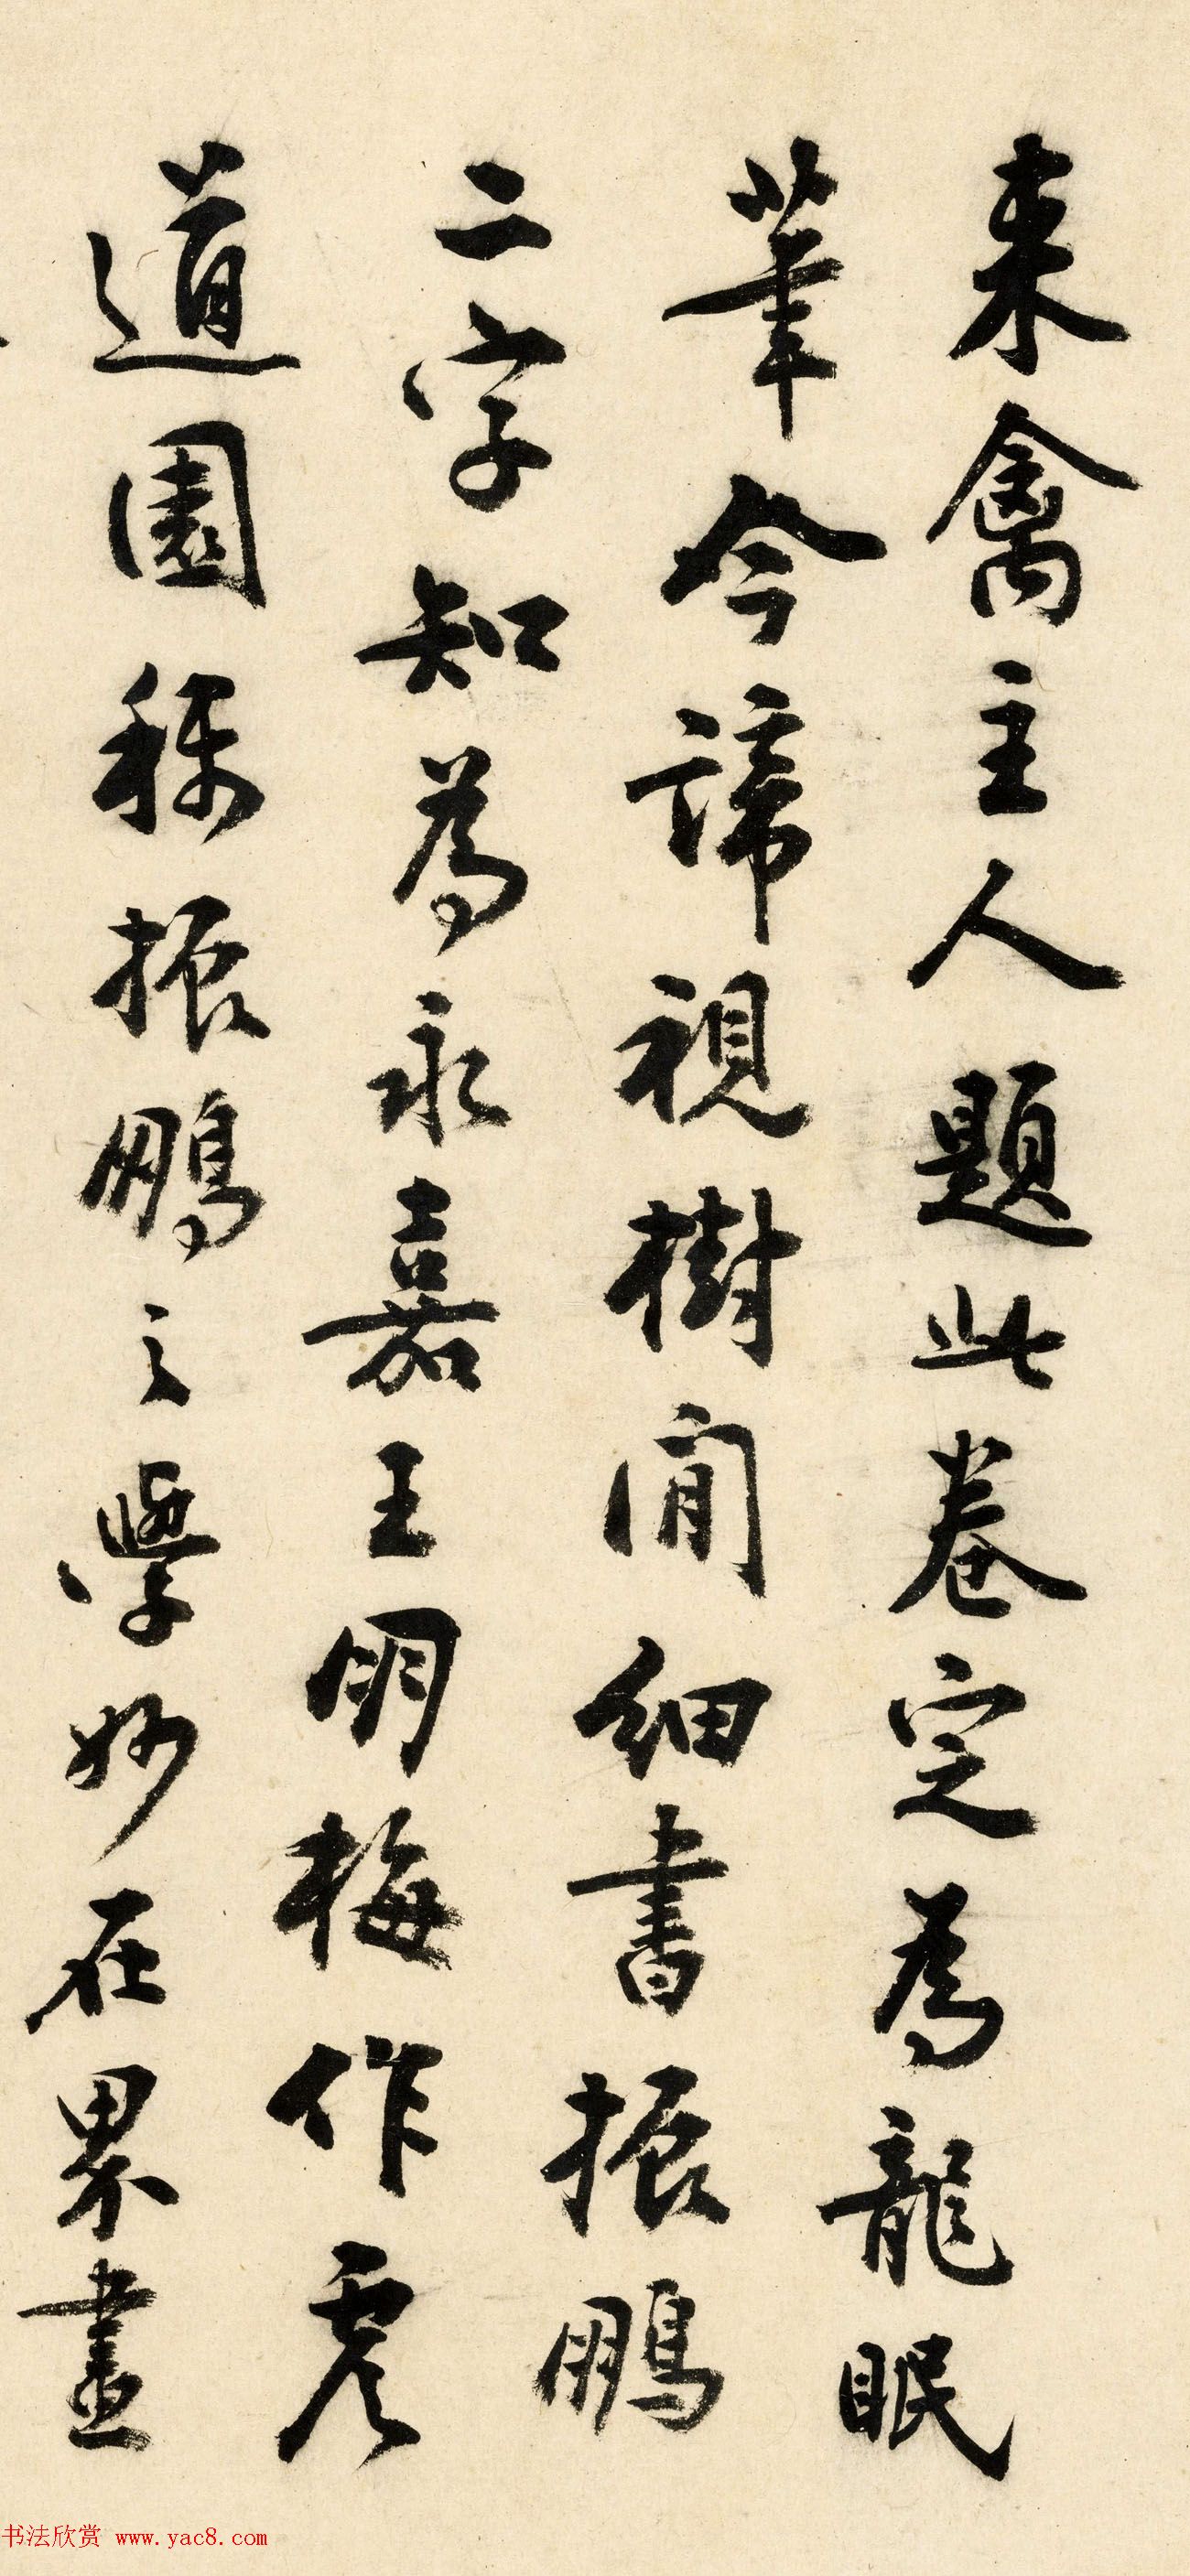 来禽主人題此卷定為龍眠
筆今諦視樹間細書振鵬
二字知為永嘉王朋梅作虞
道園稱振鵬之學妙在界畫
书法欣赏 www.yac8.com